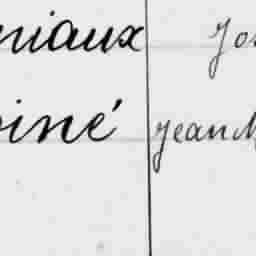 niaux Jos
oiné Jean M